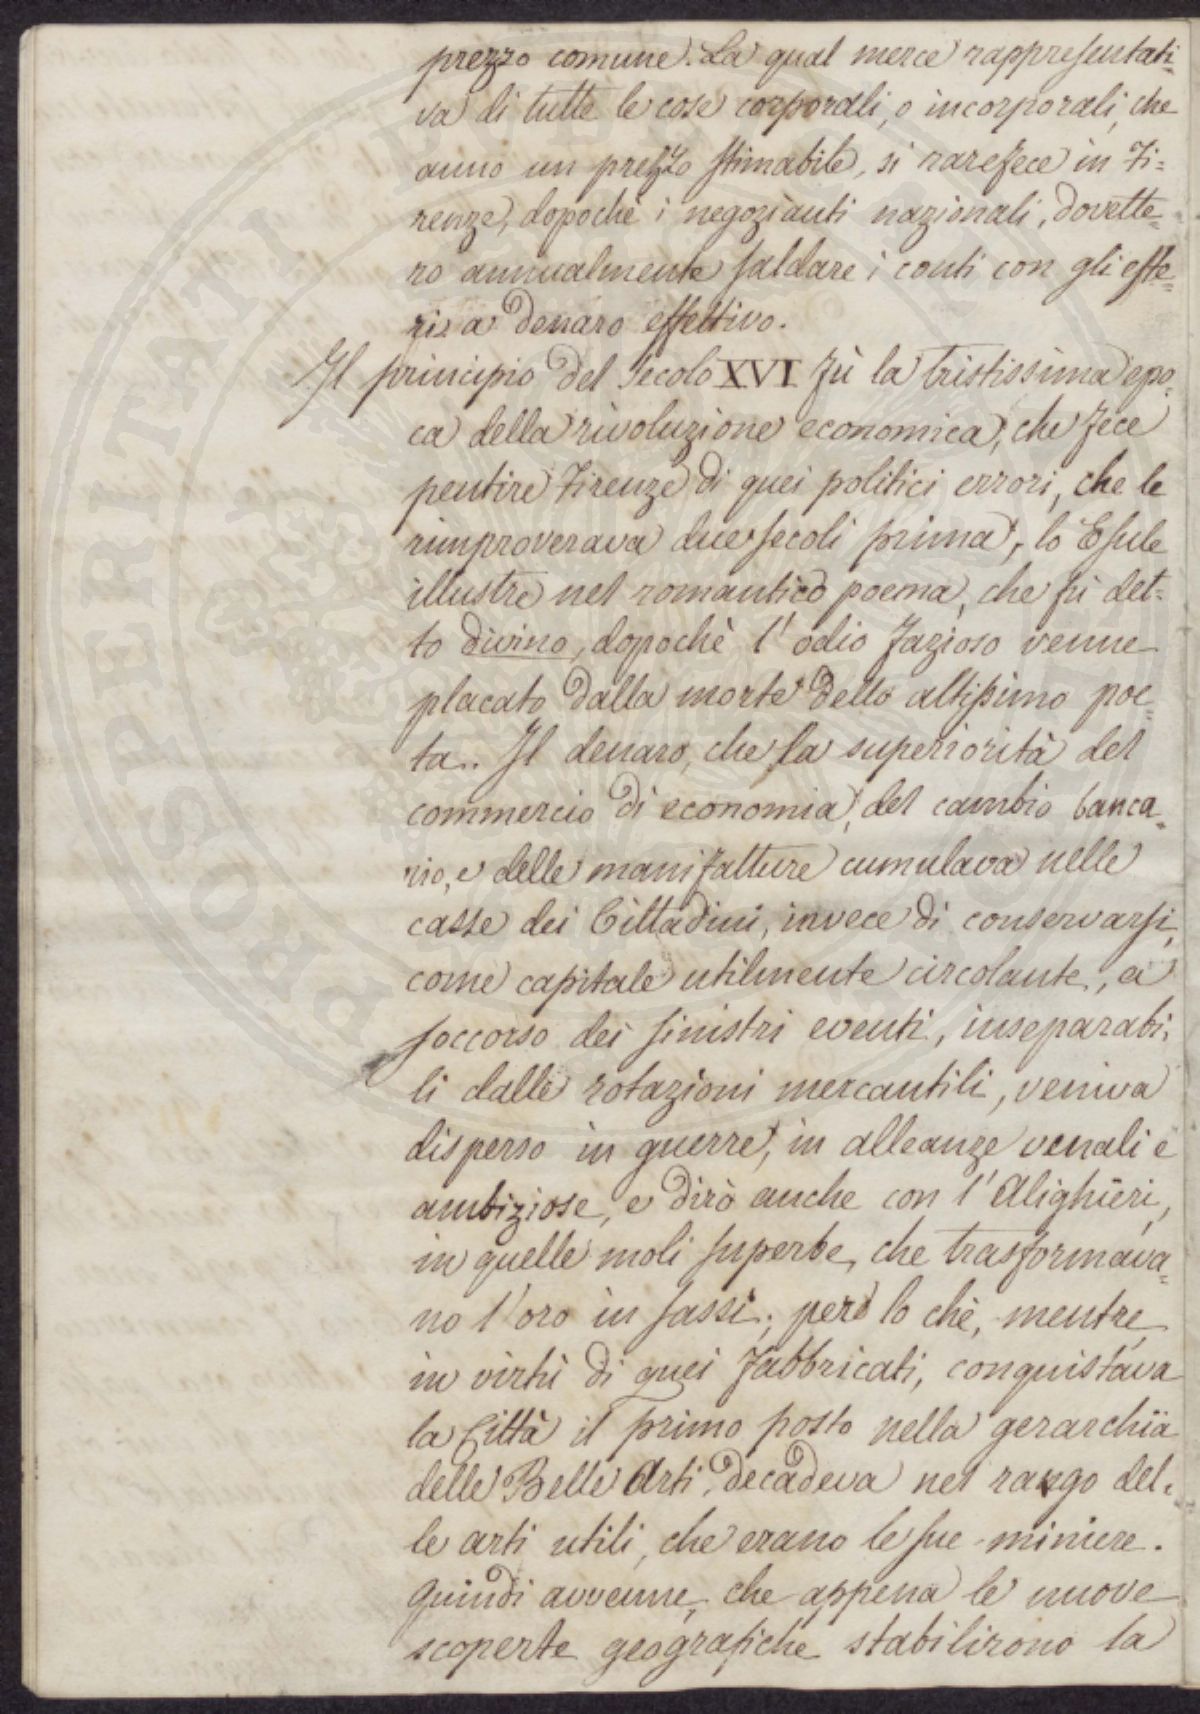 prezzo comune. La qual merce rappresentati=
va di tutte le cose corporali, o incorporali, che
anno un prezzo stimabile, si rarefece in Fi=
renze, dopochè i negozianti nazionali, dovette=
ro annualmente saldare i conti con gli este=
ri a denaro effettivo.
Il principio del Secolo XVI fù la tristissima epo=
ca della rivoluzione economica, che fece
pentire Firenze di quei politici errori, che le
rimproverava due secoli prima, lo Esule
illustre nel romantico poema, che fù det=
to divino, dopochè l'odio fazioso venne
placato dalla morte dello altissimo poe=
ta.. Il denaro, che la superiorità del
commercio di economia, del cambio banca=
rio, e delle manifatture cumulava nelle
casse dei Cittadini, invece di conservarsi,
come capitale utilmente circolante, a
soccorso dei sinistri eventi, inseparabi=
li dalle rotazioni mercantili, veniva
disperso in guerre, in alleanze venali e
ambiziose, e dirò anche con l'Alighieri,
in quelle moli superbe, che trasformava=
no l'oro in sassi; però lo chè, mentre
in virtù di quei fabbricati, conquistava
la Città il primo posto nella gerarchia
delle Belle Arti, decadeva nel rango del=
le arti utili, che erano le sue miniere.
Quindi avvenne, che appena le nuove
scoperte geografiche stabilirono la
PROSPERITATI